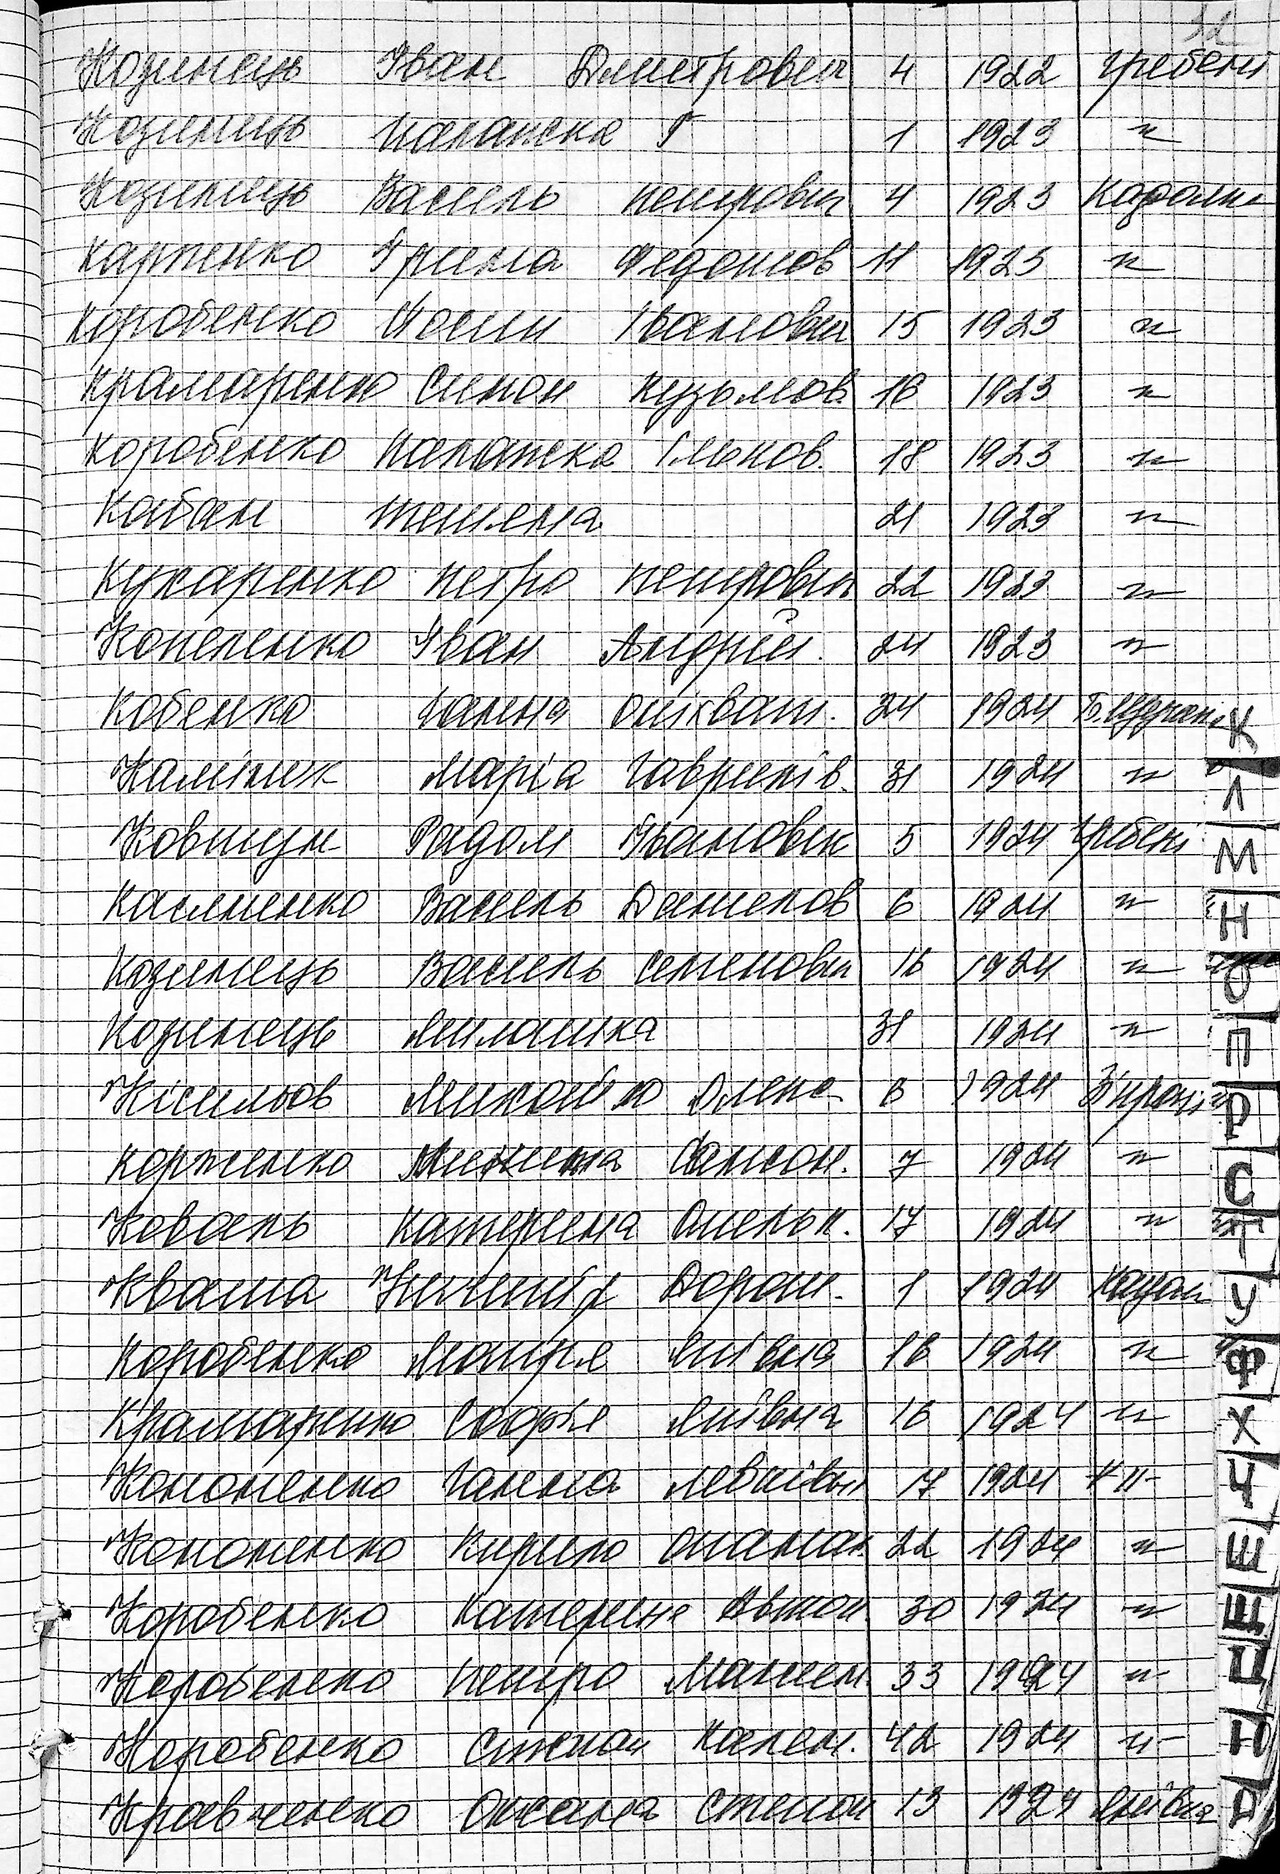 32
Козинець Іван Дмитрович 4 1922 Гребені
Козинець Палажка Г 1 1923 -"-
Козинець Василь Петрович 4 1923 Кадомка
Карпенко Ярина Федотов 11 1923 -"-
Коробенко Йосип Іванович 15 1923 -"-
Крамаренко Симон Кузьмов 18 1923 -"-
Коробенко Палажка Ільков. 18 1923 -"-
Кабан 21 1923 -"-
Кухаренко Петро Петрович 22 1923 -"-
Копеленко Іван Андрій. 24 1923 -"-
Кобенко Ганна 24 1924
Калінік Марія Гаврилів. 31 1924 -"-
Ковтун Радом Іванович 5 1924 Гребені
Касяненко Василь Данилов 6 1924 -"-
Козинець Василь Семенович 16 1924 -"-
Козинець Милашка 31 1924 -"-
Кісильов Микайло Олекс 8 1924
Корженко Самсон. 7 1924 -"-
Коваль Катерина Омельк. 17 1924 -"-
Кваша Дорош. 1 1924
Коробенко Мотря Яківна 18 1924 -"-
Крамаренко Софія Яківна 16 1924 -"-
Кононенко Ганна Левківн 17 1924 -"-
Кононенко Кирило Опанас 22 1924 -"-
Коробенко Катерина Автон. 30 1924 -"-
Коробенко Петро Максим. 33 1924 -"-
Коробенко Степан Кален. 42 1924 -"-
Кравченко Оксана Степан 13 1924 Яківка
К
Л
М
Н
О
П
Р
С
Т
У
Ф
Х
Ч
Ш
Щ
Ц